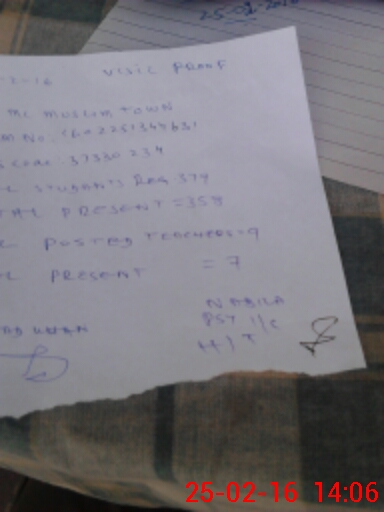 25.02.2016
2-16 VISIT PROOF
MC MUSLIM TOWN
M No:
S Code: 37330234
L STUDENTS REG. 379
TAL PRESENT = 358
L POSTED TEACHERS = 9
L PRESENT = 7
NABILA
PST I/C
H/T
KHAN
25-02-16 14:06